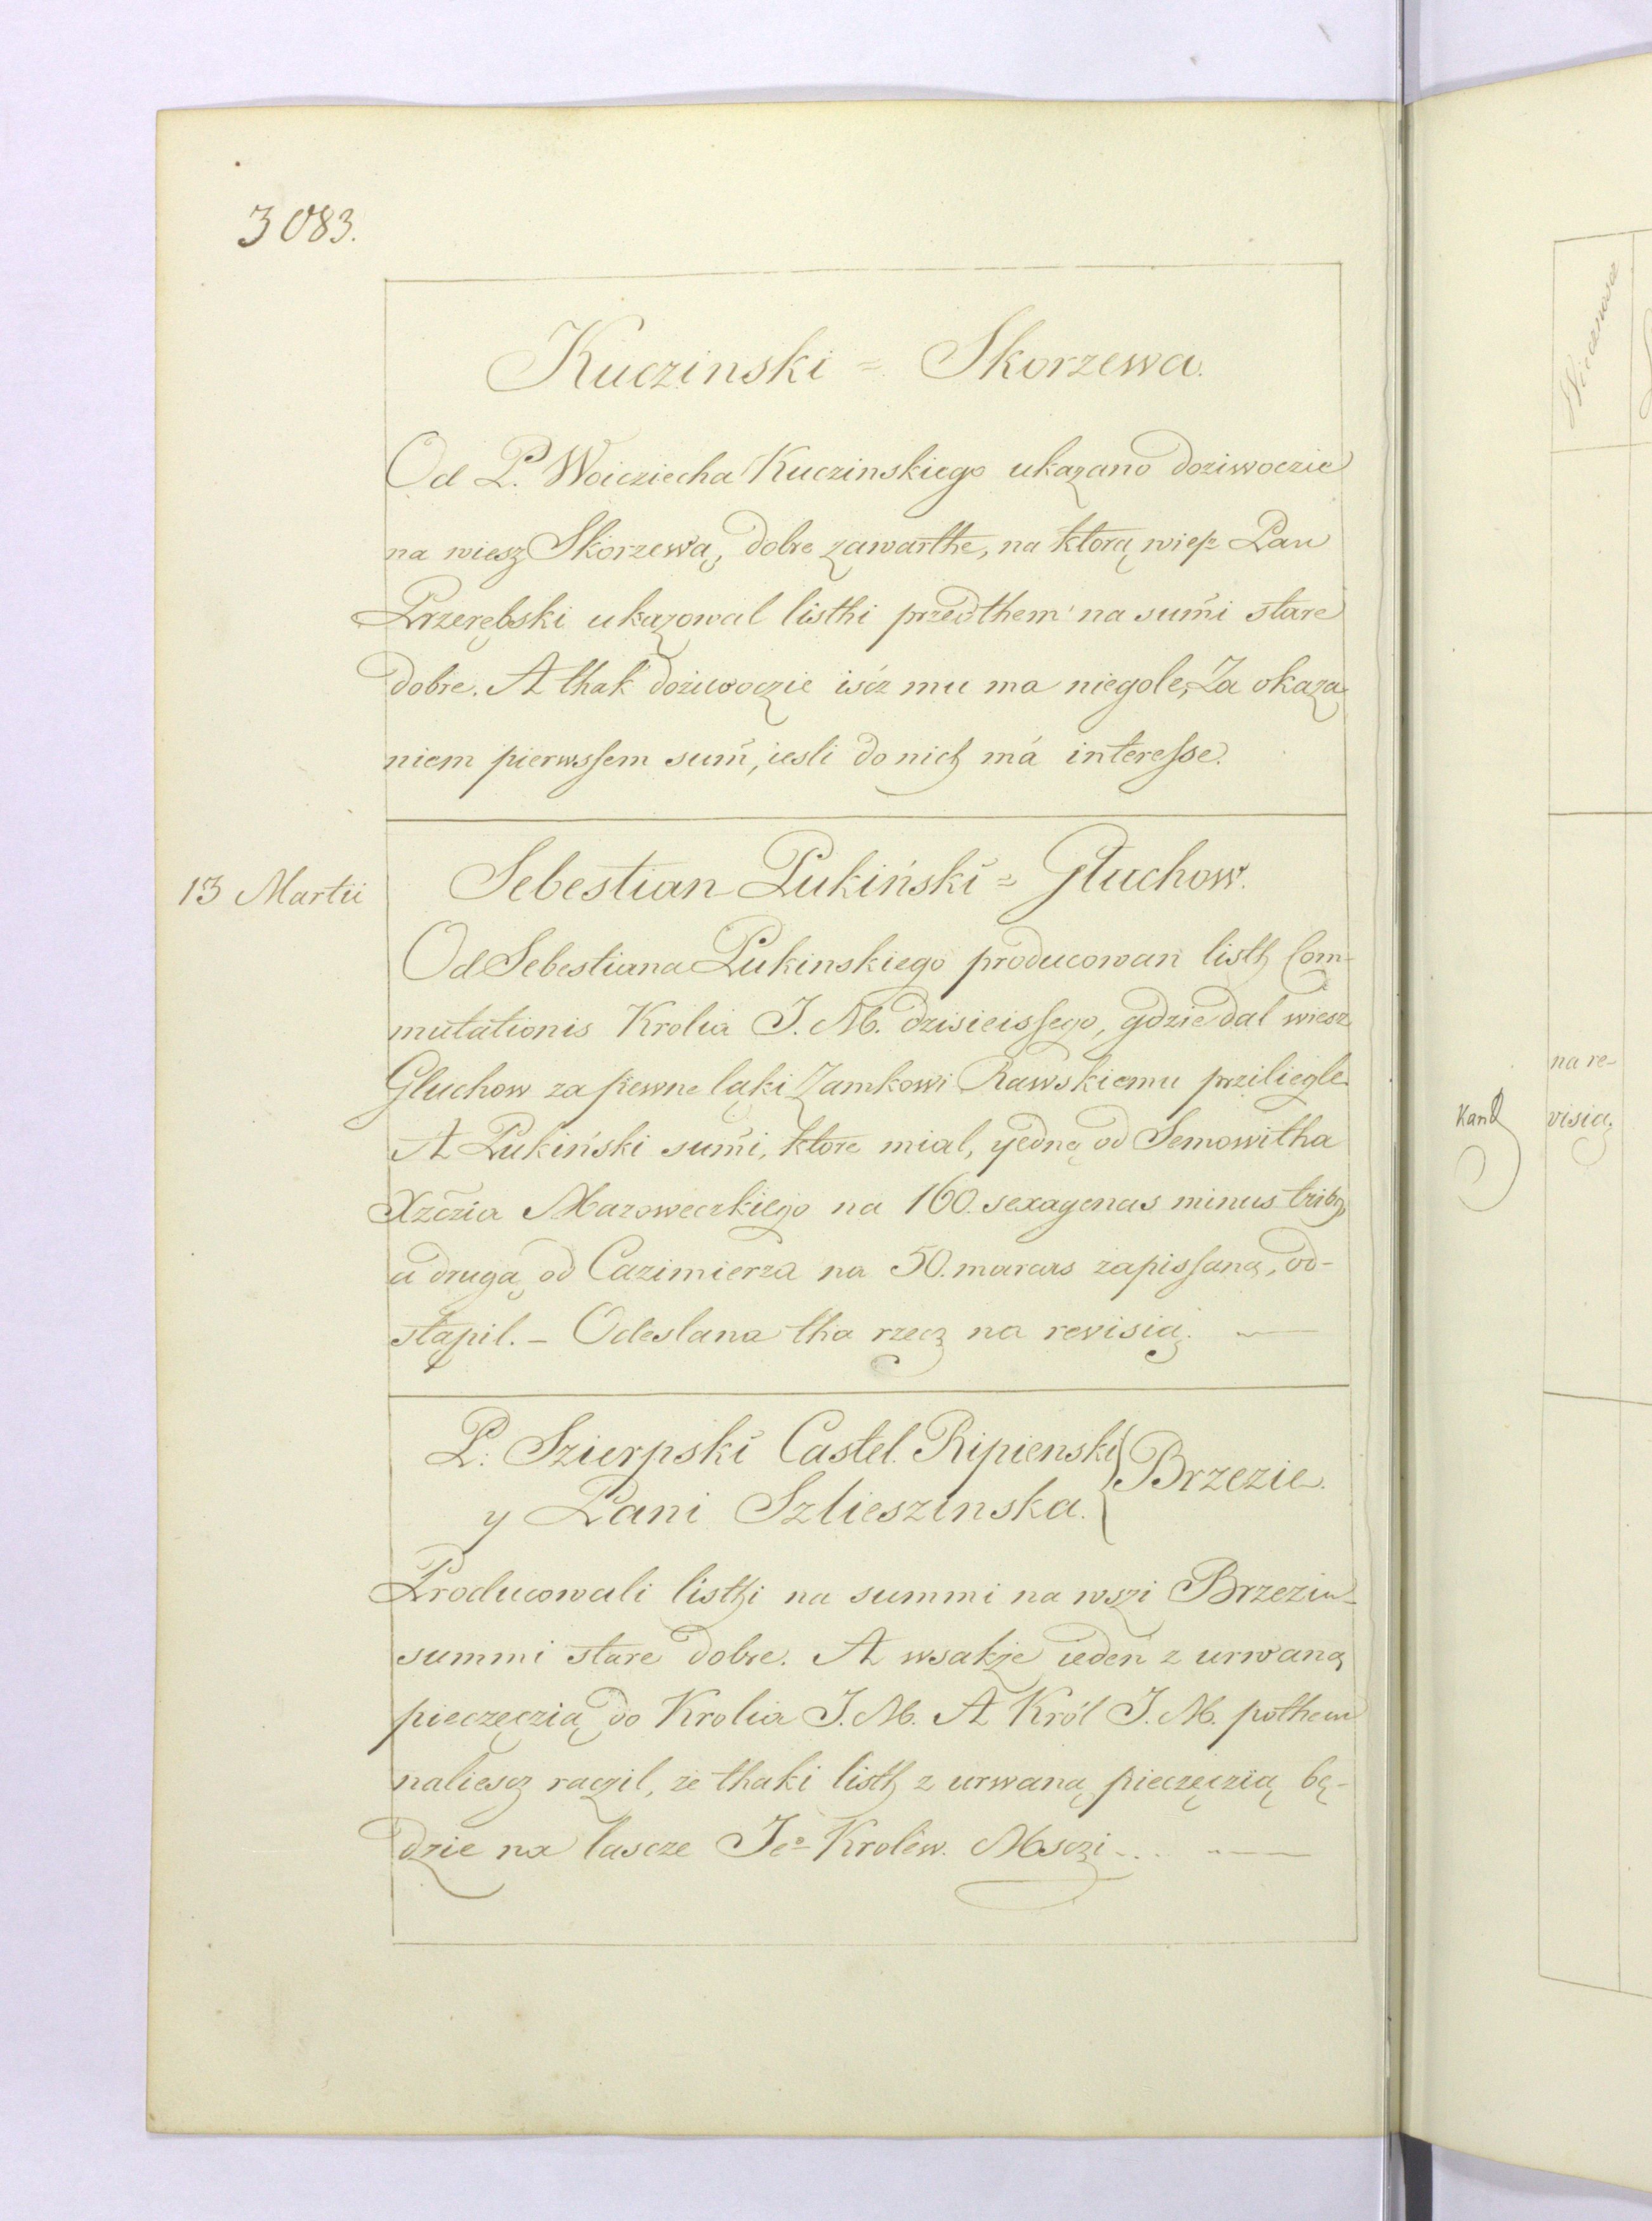 3083.
Kuczinski = Skorzewa.
Od P. Woicziecha Kuczinskiego ukazano doziwoczie
na wiesz Skorzewą, dobre zawarthe, na ktorą wiesz Pan
Przerębski ukazowal listhi przedthem na sum̃i stare
dobre. A thak dożiwoczie iścz mu ma niegole, Za okaza
niem pierwssem sum̃, iesli do nich má interesse.
13 Martii
Sebestian Pukiński = Głuchow.
Od Sebestiana Pukinskiego producowan listh Com-
mutationis Krolia J. M. dzisieissego, gdzie dal wiesz
Gluchow za pewne ląki Zamkowi Rawskiemu prziliegle
A Pukiński sum̃i, ktore mial, yedną od Semowitha
Xzc̃zia Mazoweczkiego na 160. sexagenas minus tribg
a drugą od Cazimierza na 50. marcas zapissaną, od-
stąpil. - Odeslana tha rzecz na revisią.
P. Szierpski Castel. Ripienski
y Pani Szlieszinska.
Brzezie.
Producowali listhi na summi na wszi Brzeziu
summi stare dobre. A wsakże ieden z urwaną
pieczęczią do Krolia J. M. A Król J. M. pothem
naliescz raczil, ze thaki listh z urwaną pieczęczią bę-
dzie na lascze Je° Krolew. Msczi...
na re-
visią